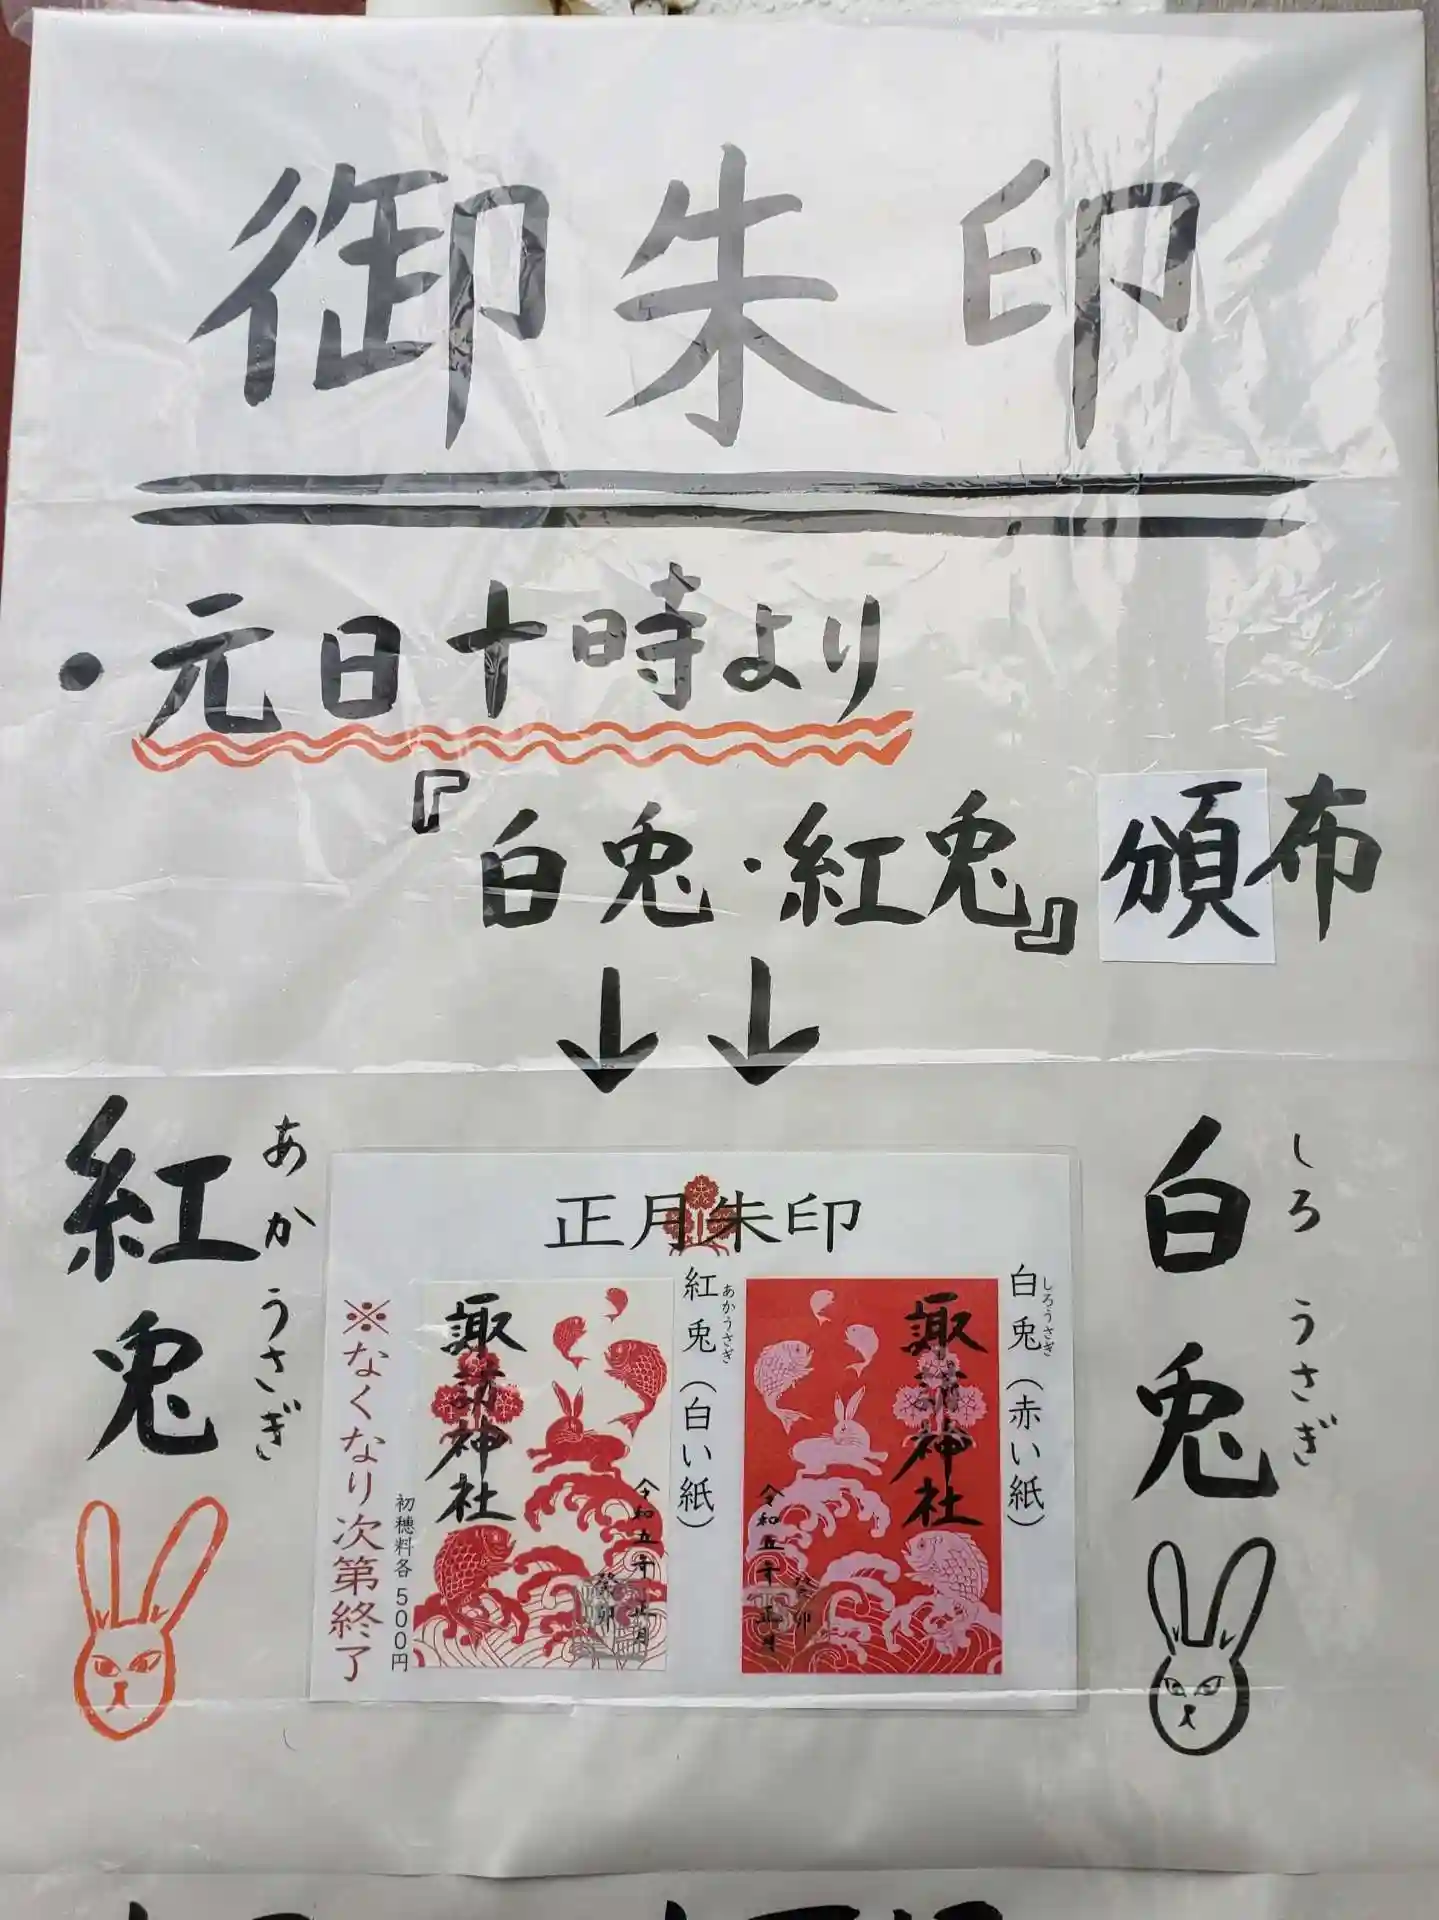 御朱印
・元日十時より
『白兎・紅兎』頒布
↓↓
白兎
しろうさぎ
紅兎
あかうさぎ
正月朱印
白兎(赤い紙)
しろうさぎ
諏訪神社
令和五年正月
癸卯
紅兎(白い紙)
あかうさぎ
諏訪神社
令和五年正月
癸卯
初穂料各500円
※なくなり次第終了